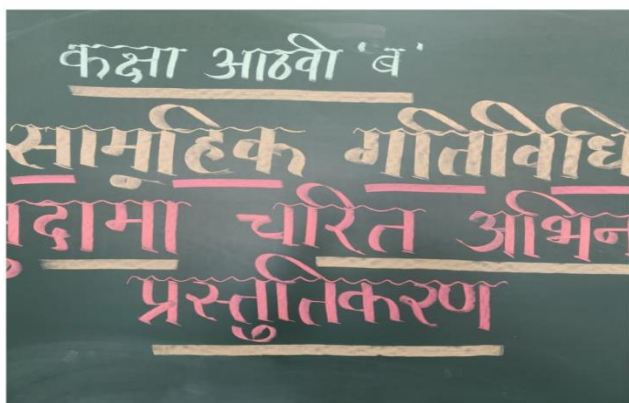 कक्षा आठवी 'ब'
सामुहिक गतिविधि
चरित
प्रस्तुतिकरण